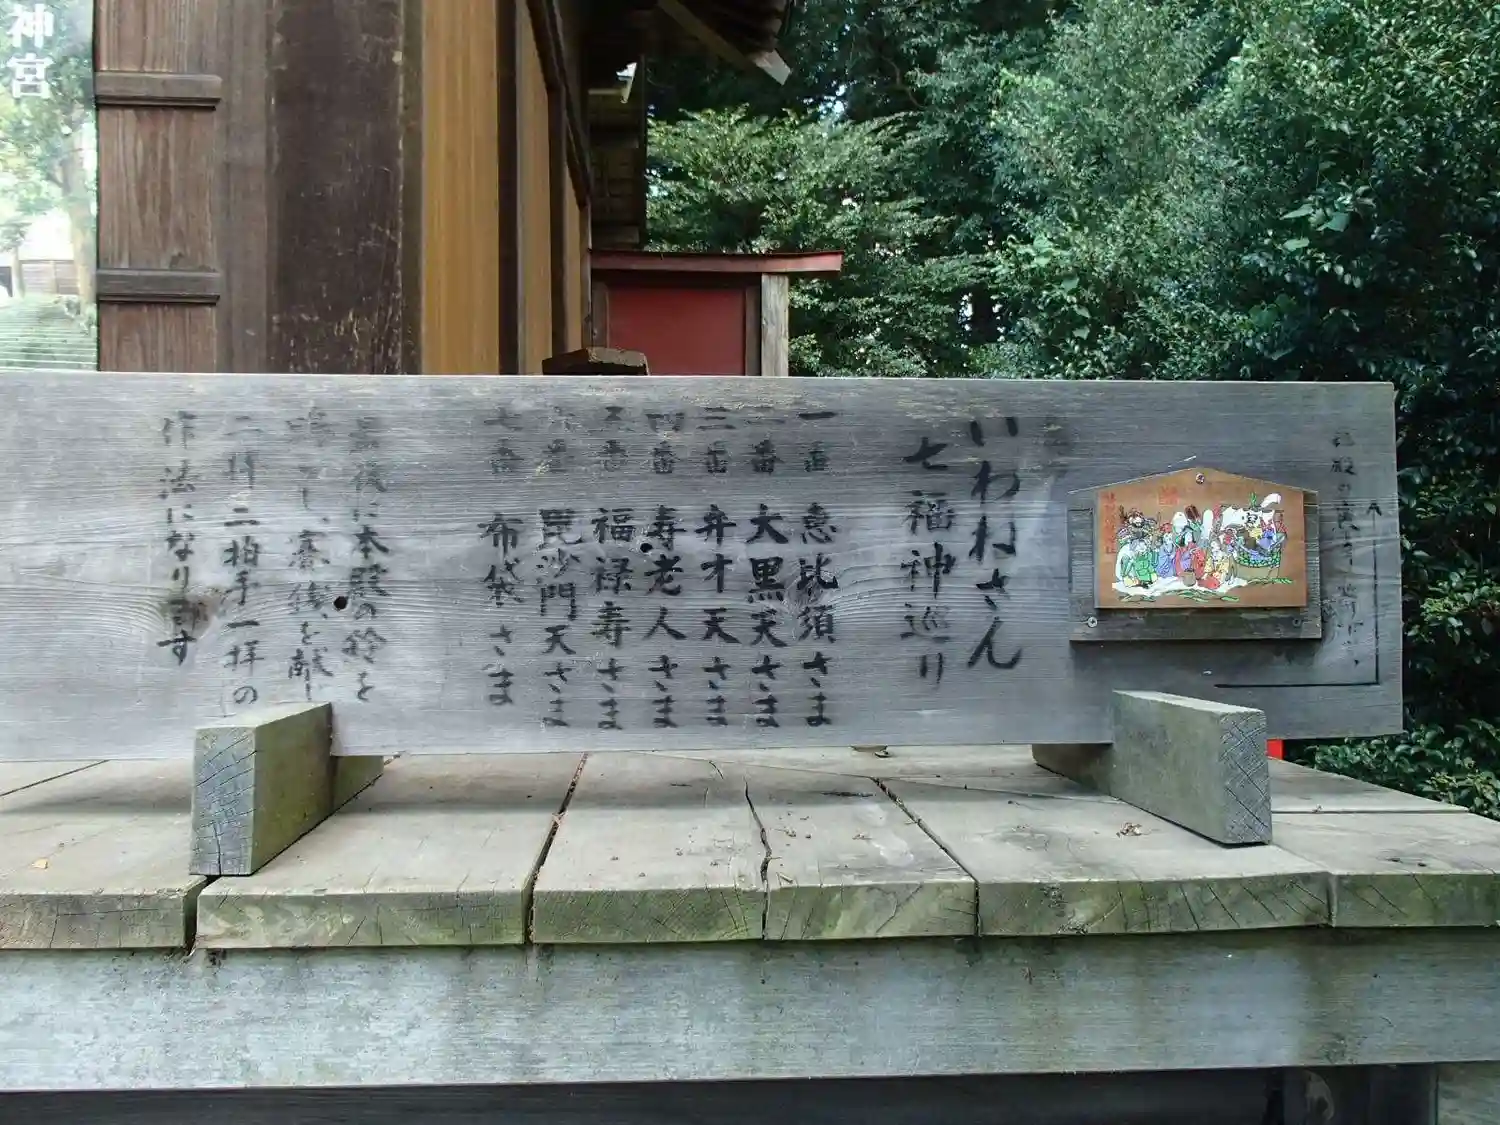 いわねさん
七福神巡り
一番 恵比須さま
二番 大黒天さま
三番 弁才天さま
四番 寿老人さま
五番 福禄寿さま
六番 毘沙門天さま
七番 布袋さま
最後に本殿の鈴を
鳴らし、賽銭を献じ
二拝二拍手一拝の
作法になります
神宮